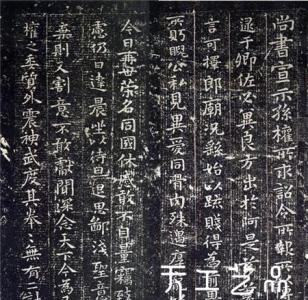 尚書宣示孫權所求詔令所報
逮于卿佐必冀良方出於阿是芻
言可擇郎廟況繇始以疏賤得為前恩
所盼睨公私見異愛同骨肉殊遇厚
今日再世榮名同國休慼敢不自量竊致
慮仍日達晨坐以待旦退思鄙淺聖意
棄則又割意不敢獻聞深念天下今為
權之委質外震神武度其拳拳無有二
天工艺品